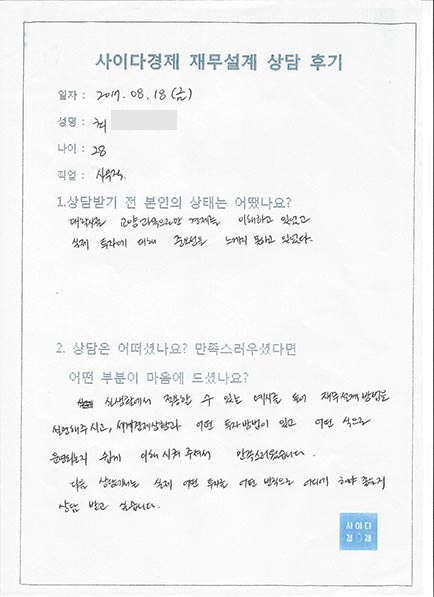 사이다경제 재무설계 상담 후기
일자 : 2017. 08. 18 (금)
성명 : 최
나이 : 28
직업 : 사무직.
1.상담받기 전 본인의 상태는 어땠나요?
대학시절 교양과목으로만 경제를 이해하고 있었고
실제 투자에 대해 중요성을 느끼지 못하고 있었다.
2. 상담은 어떠셨나요? 만족스러우셨다면
어떤 부분이 마음에 드셨나요?
실생활에서 적용할 수 있는 예시를 들어 재무설계 방법을
설명해주시고, 세계경제상황과 어떤 투자방법이 있고 어떤 식으로
운영되는지 쉽게 이해 시켜 주셔서 만족스러웠습니다.
다음 상담에서는 실제 어떤 투자를 어떤 방식으로 어디에 해야 좋을지
상담 받고 싶습니다.
사이다
경제